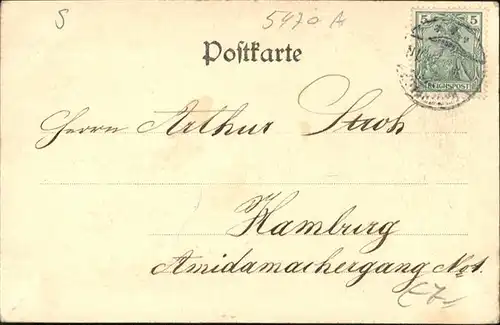 S 5470 A
5 5
Postkarte
REICHSPOST
Herrn Arthur Stroh
Hamburg
Amidamachergang No 1.